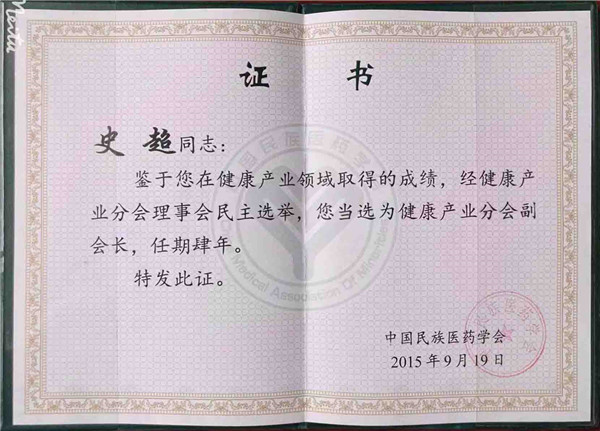 证 书
史 超同志：
鉴于您在健康产业领域取得的成绩，经健康产
业分会理事会民主选举，您当选为健康产业分会副
会长，任期肆年。
特发此证。
中国民族医药学会
2015年9月19日